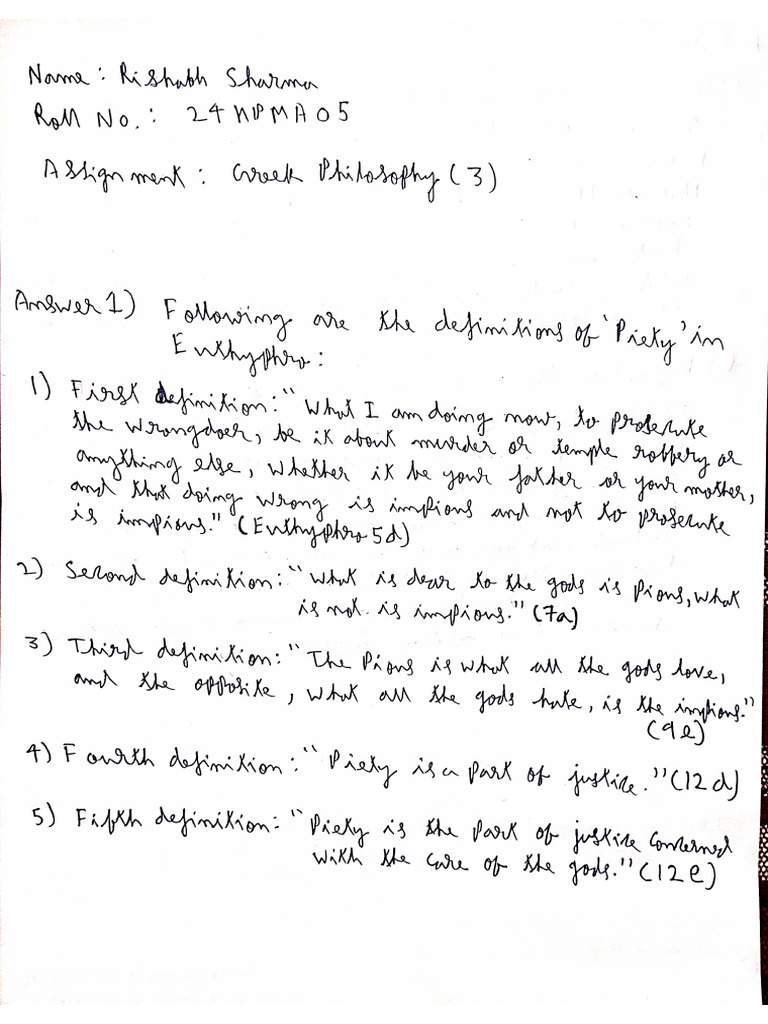 Name: Rishabh Sharma
Roll No.: 24KPMA05
Assignment: Greek Philosophy (3)
Answer 1) Following are the definitions of 'Piety' in
Euthyphro:
1) First definition: "What I am doing now, to prosecute
the wrongdoer, be it about murder or temple robbery or
anything else, whether it be your father or your mother,
and that doing wrong is impious and not to prosecute
is impious." (Euthyphro 5d)
2) Second definition: "What is dear to the gods is pious, what
is not is impious." (7a)
3) Third definition: "The Pious is what all the gods love,
and the opposite, what all the gods hate, is the impious."
(9e)
4) Fourth definition: "Piety is a part of justice." (12d)
5) Fifth definition: "Piety is the part of justice concerned
with the care of the gods." (12e)